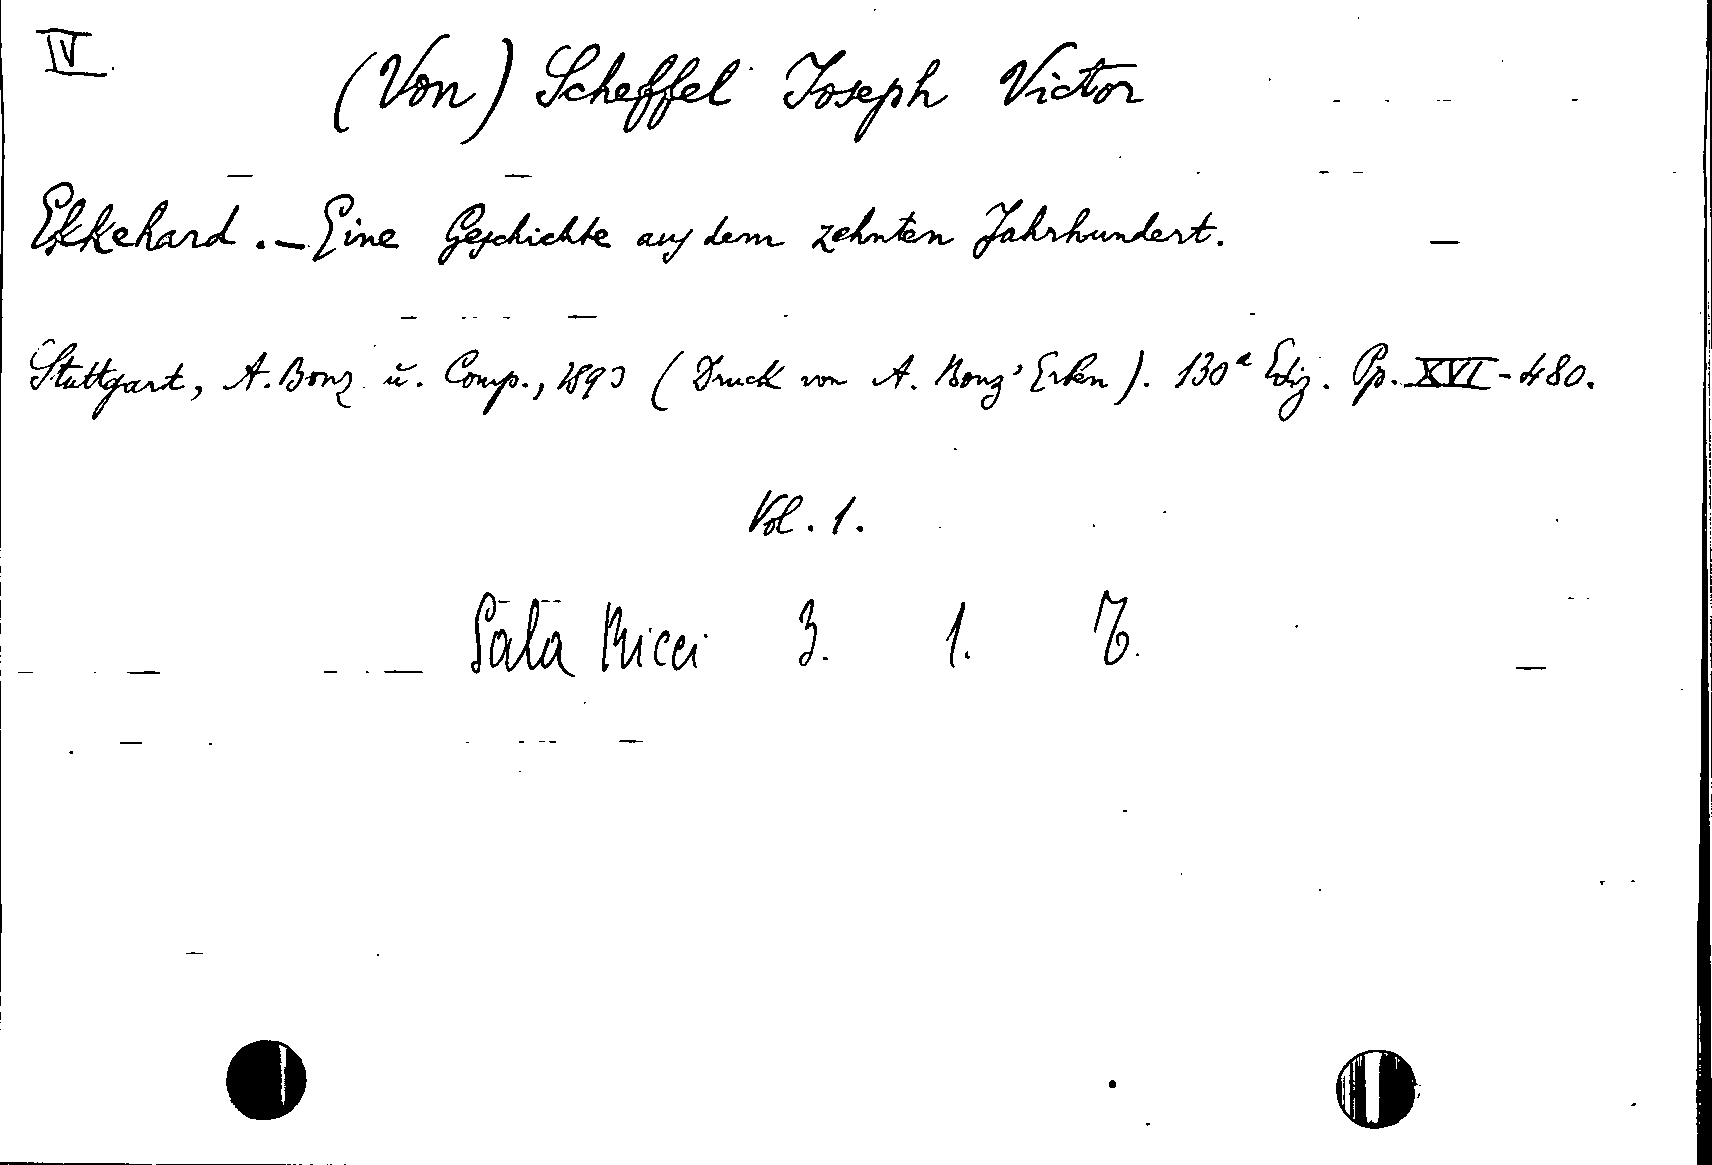 IV
(Von) Scheffel Joseph Victor
Ekkehard. – Eine Geschichte aus dem zehnten Jahrhundert.
Stuttgart, A. Bonz u. Comp., 1893 (Druck von A. Bonz' Erben). 130ª Ediz. Pp. XVI-480.
Vol. 1.
Sala Ricci 3. 1. 7.